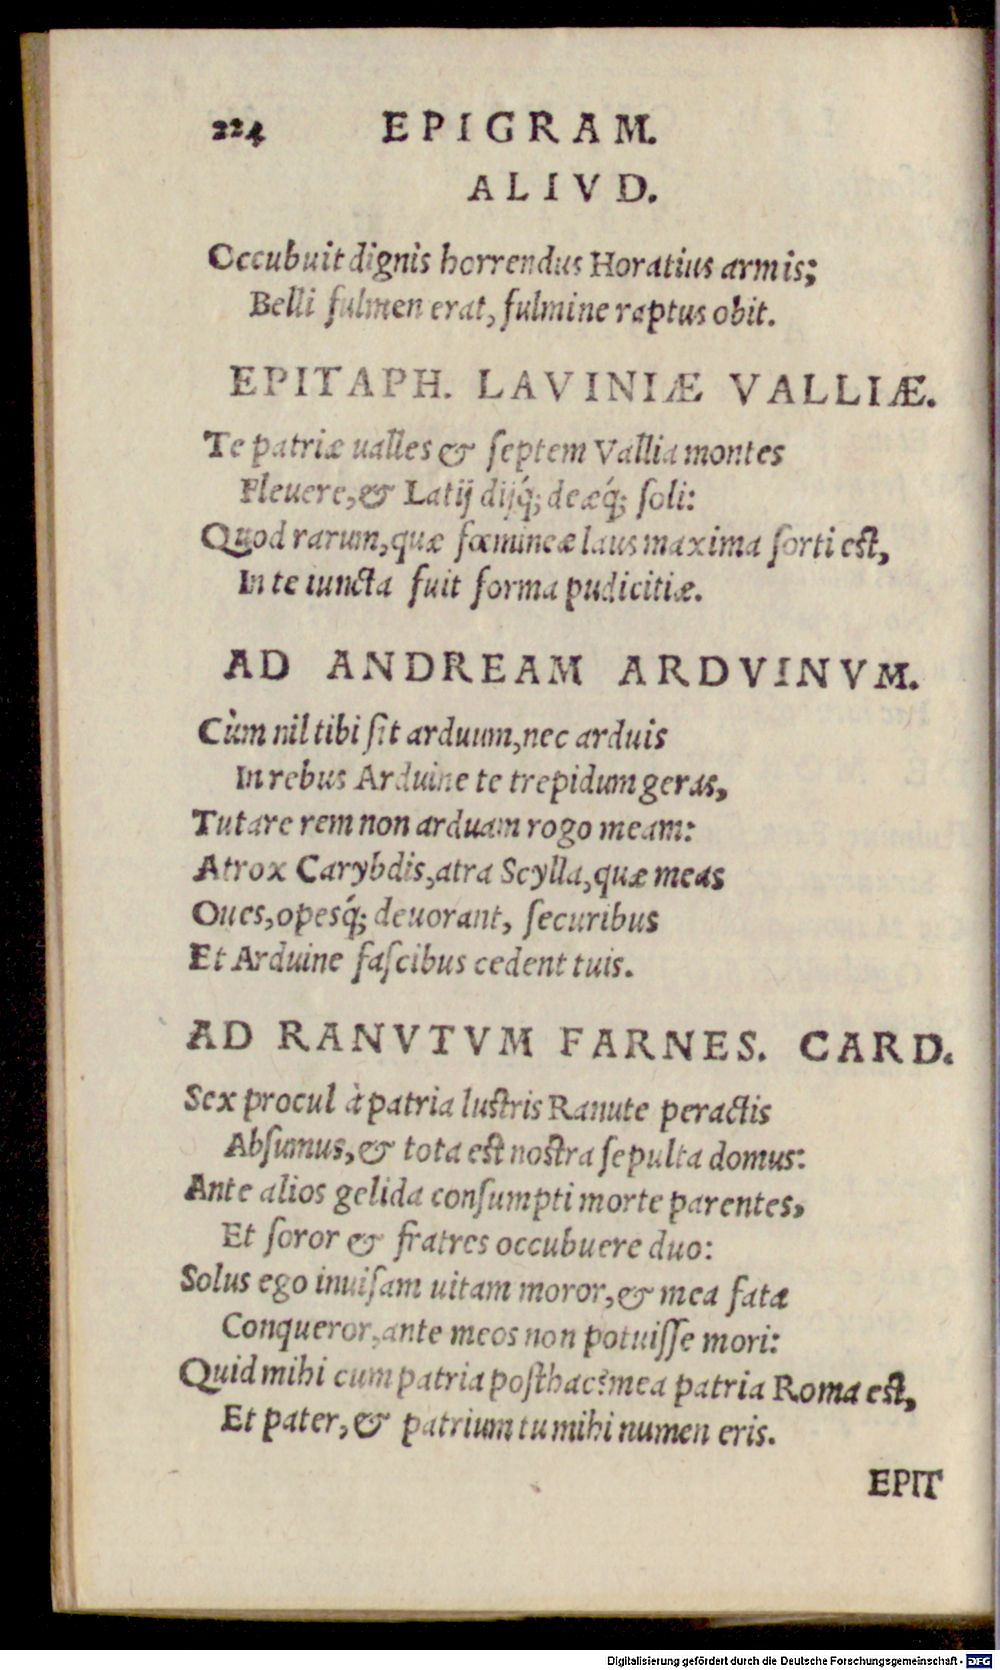 224 EPIGRAM.
ALIVD.
Occubuit dignis horrendus Horatius armis;
Belli fulmen erat, fulmine raptus obit.
EPITAPH. LAVINIÆ VALLIÆ.
Te patriæ ualles & ſeptem Vallia montes
Fleuere, & Latij dijq́; deæq́; ſoli:
Quod rarum, quæ fœmineæ laus maxima ſorti est,
In te iuncta fuit forma pudicitiæ.
AD ANDREAM ARDVINVM.
Cùm nil tibi ſit arduum, nec arduis
In rebus Arduine te trepidum geras,
Tutare rem non arduam rogo meam:
Atrox Carybdis, atra Scylla, quæ meas
Oues, opesq́; deuorant, ſecuribus
Et Arduine faſcibus cedent tuis.
AD RANVTVM FARNES. CARD.
Sex procul à patria lustris Ranute peractis
Abſumus, & tota est nostra ſepulta domus:
Ante alios gelida conſumpti morte parentes,
Et ſoror & fratres occubuere duo:
Solus ego inuiſam uitam moror, & mea fata
Conqueror, ante meos non potuiſſe mori:
Quid mihi cum patria posthac? mea patria Roma est,
Et pater, & patrium tu mihi numen eris.
EPIT
Digitalisierung gefördert durch die Deutsche Forschungsgemeinschaft - DFG